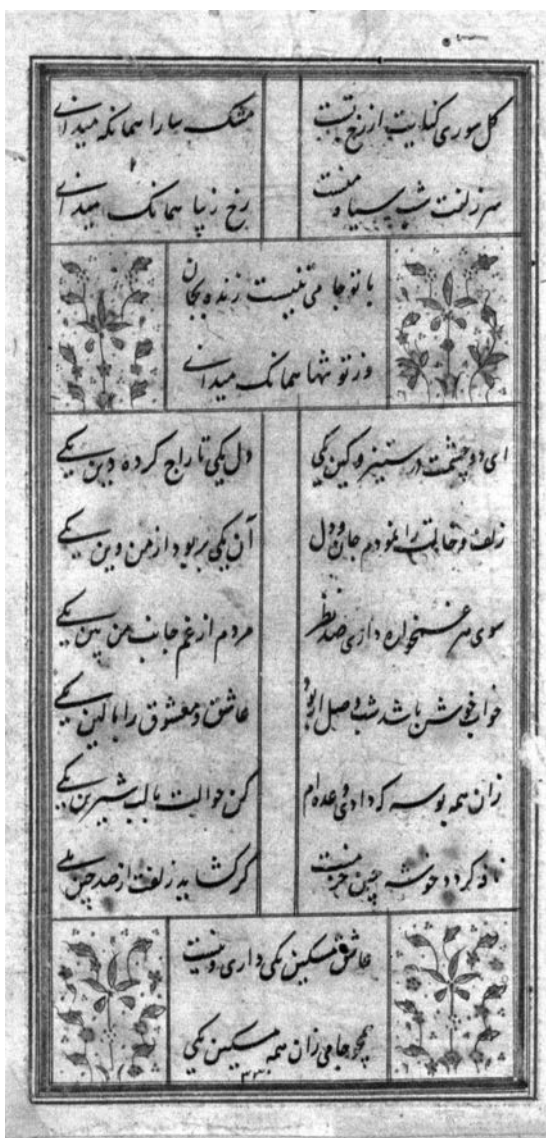 کل سوری کنایت از رخ تست مشک سارا همانکه میدانی
سر زلفت شب سیاه منست رخ زیبا همانک میدانی
با تو جامی تنیست زنده بجان
وز تو تنها همانک میدانی
ای دو چشمت در ستیز و کین یکی دل یکی تاراج کرده دین یکی
زلف و خالت را نمودم جان و دل آن یکی بربود از من وین یکی
سوی هر غمخواره داری صد نظر مردم از غم جانب من بین یکی
خواب خوش باشد شب وصل ار بود عاشق و معشوق را بالین یکی
زان همه بوسه که دادی وعده ام کن حوالت با لب شیرین یکی
کردد خوشه چین خرمنت کر کشاید زلفت از صد چین یکی
عاشق مسکین یکی داری و نیست
همچو جامی زان همه مسکین یکی